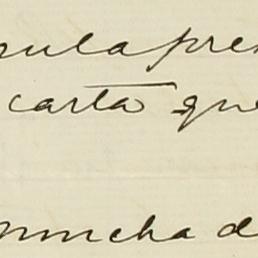 nula pre
carta que
mucha d